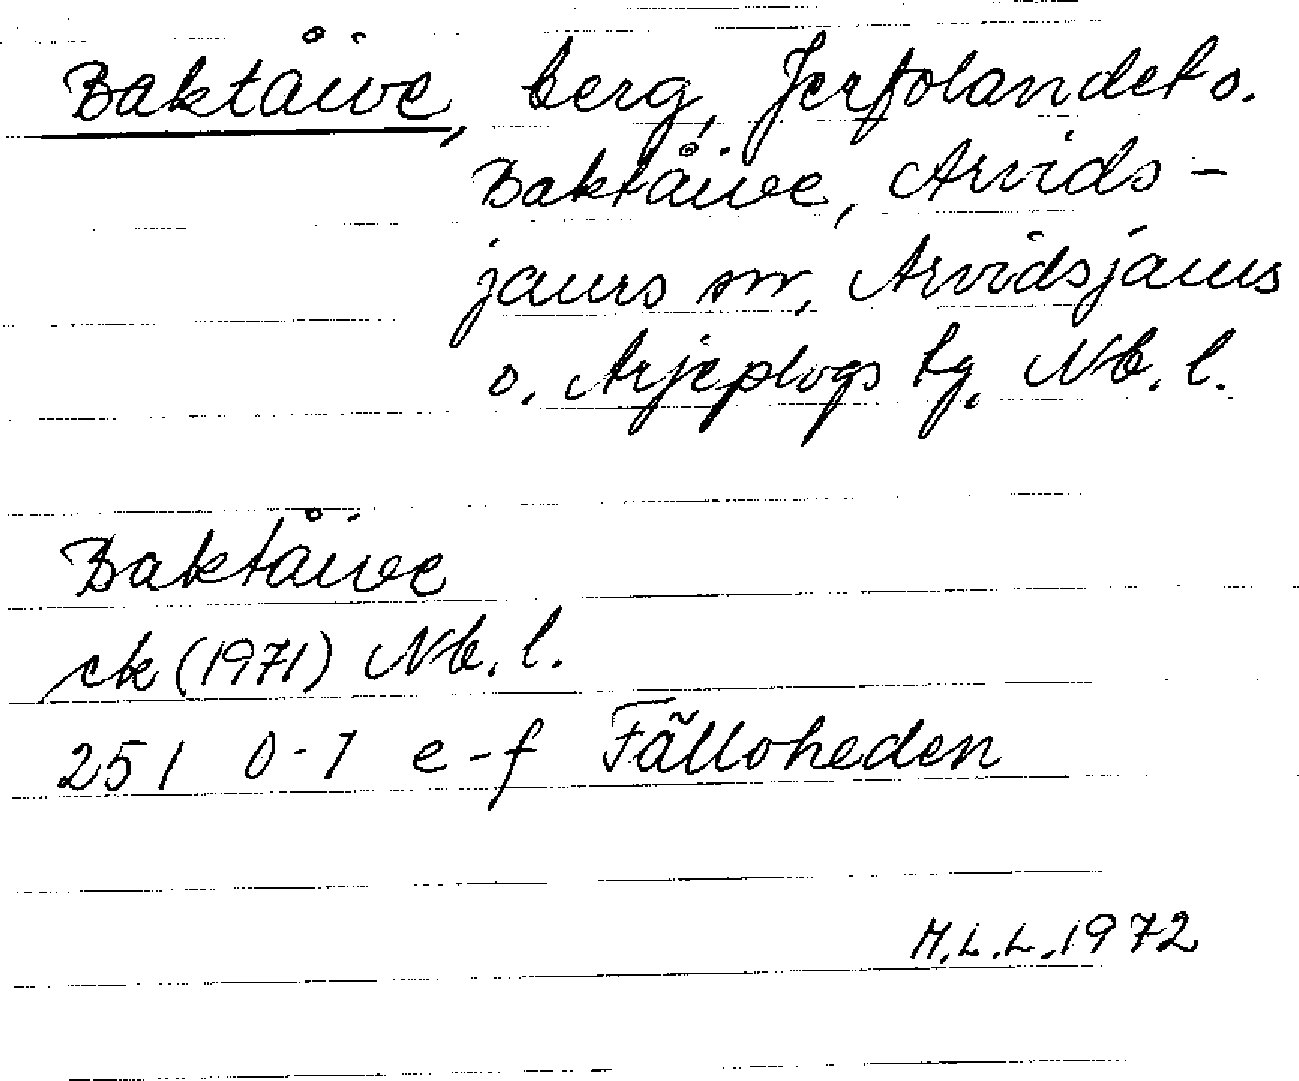 Baktåive, berg, Jerfolandet o.
Baktåive, Arvids-
jaurs sn, Arvidsjaurs
o. Arjeplogs tg, Nb. l.
Baktåive
ek (1971) Nb. l.
251 0-1 e-f Fälloheden
M.L.L. 1972